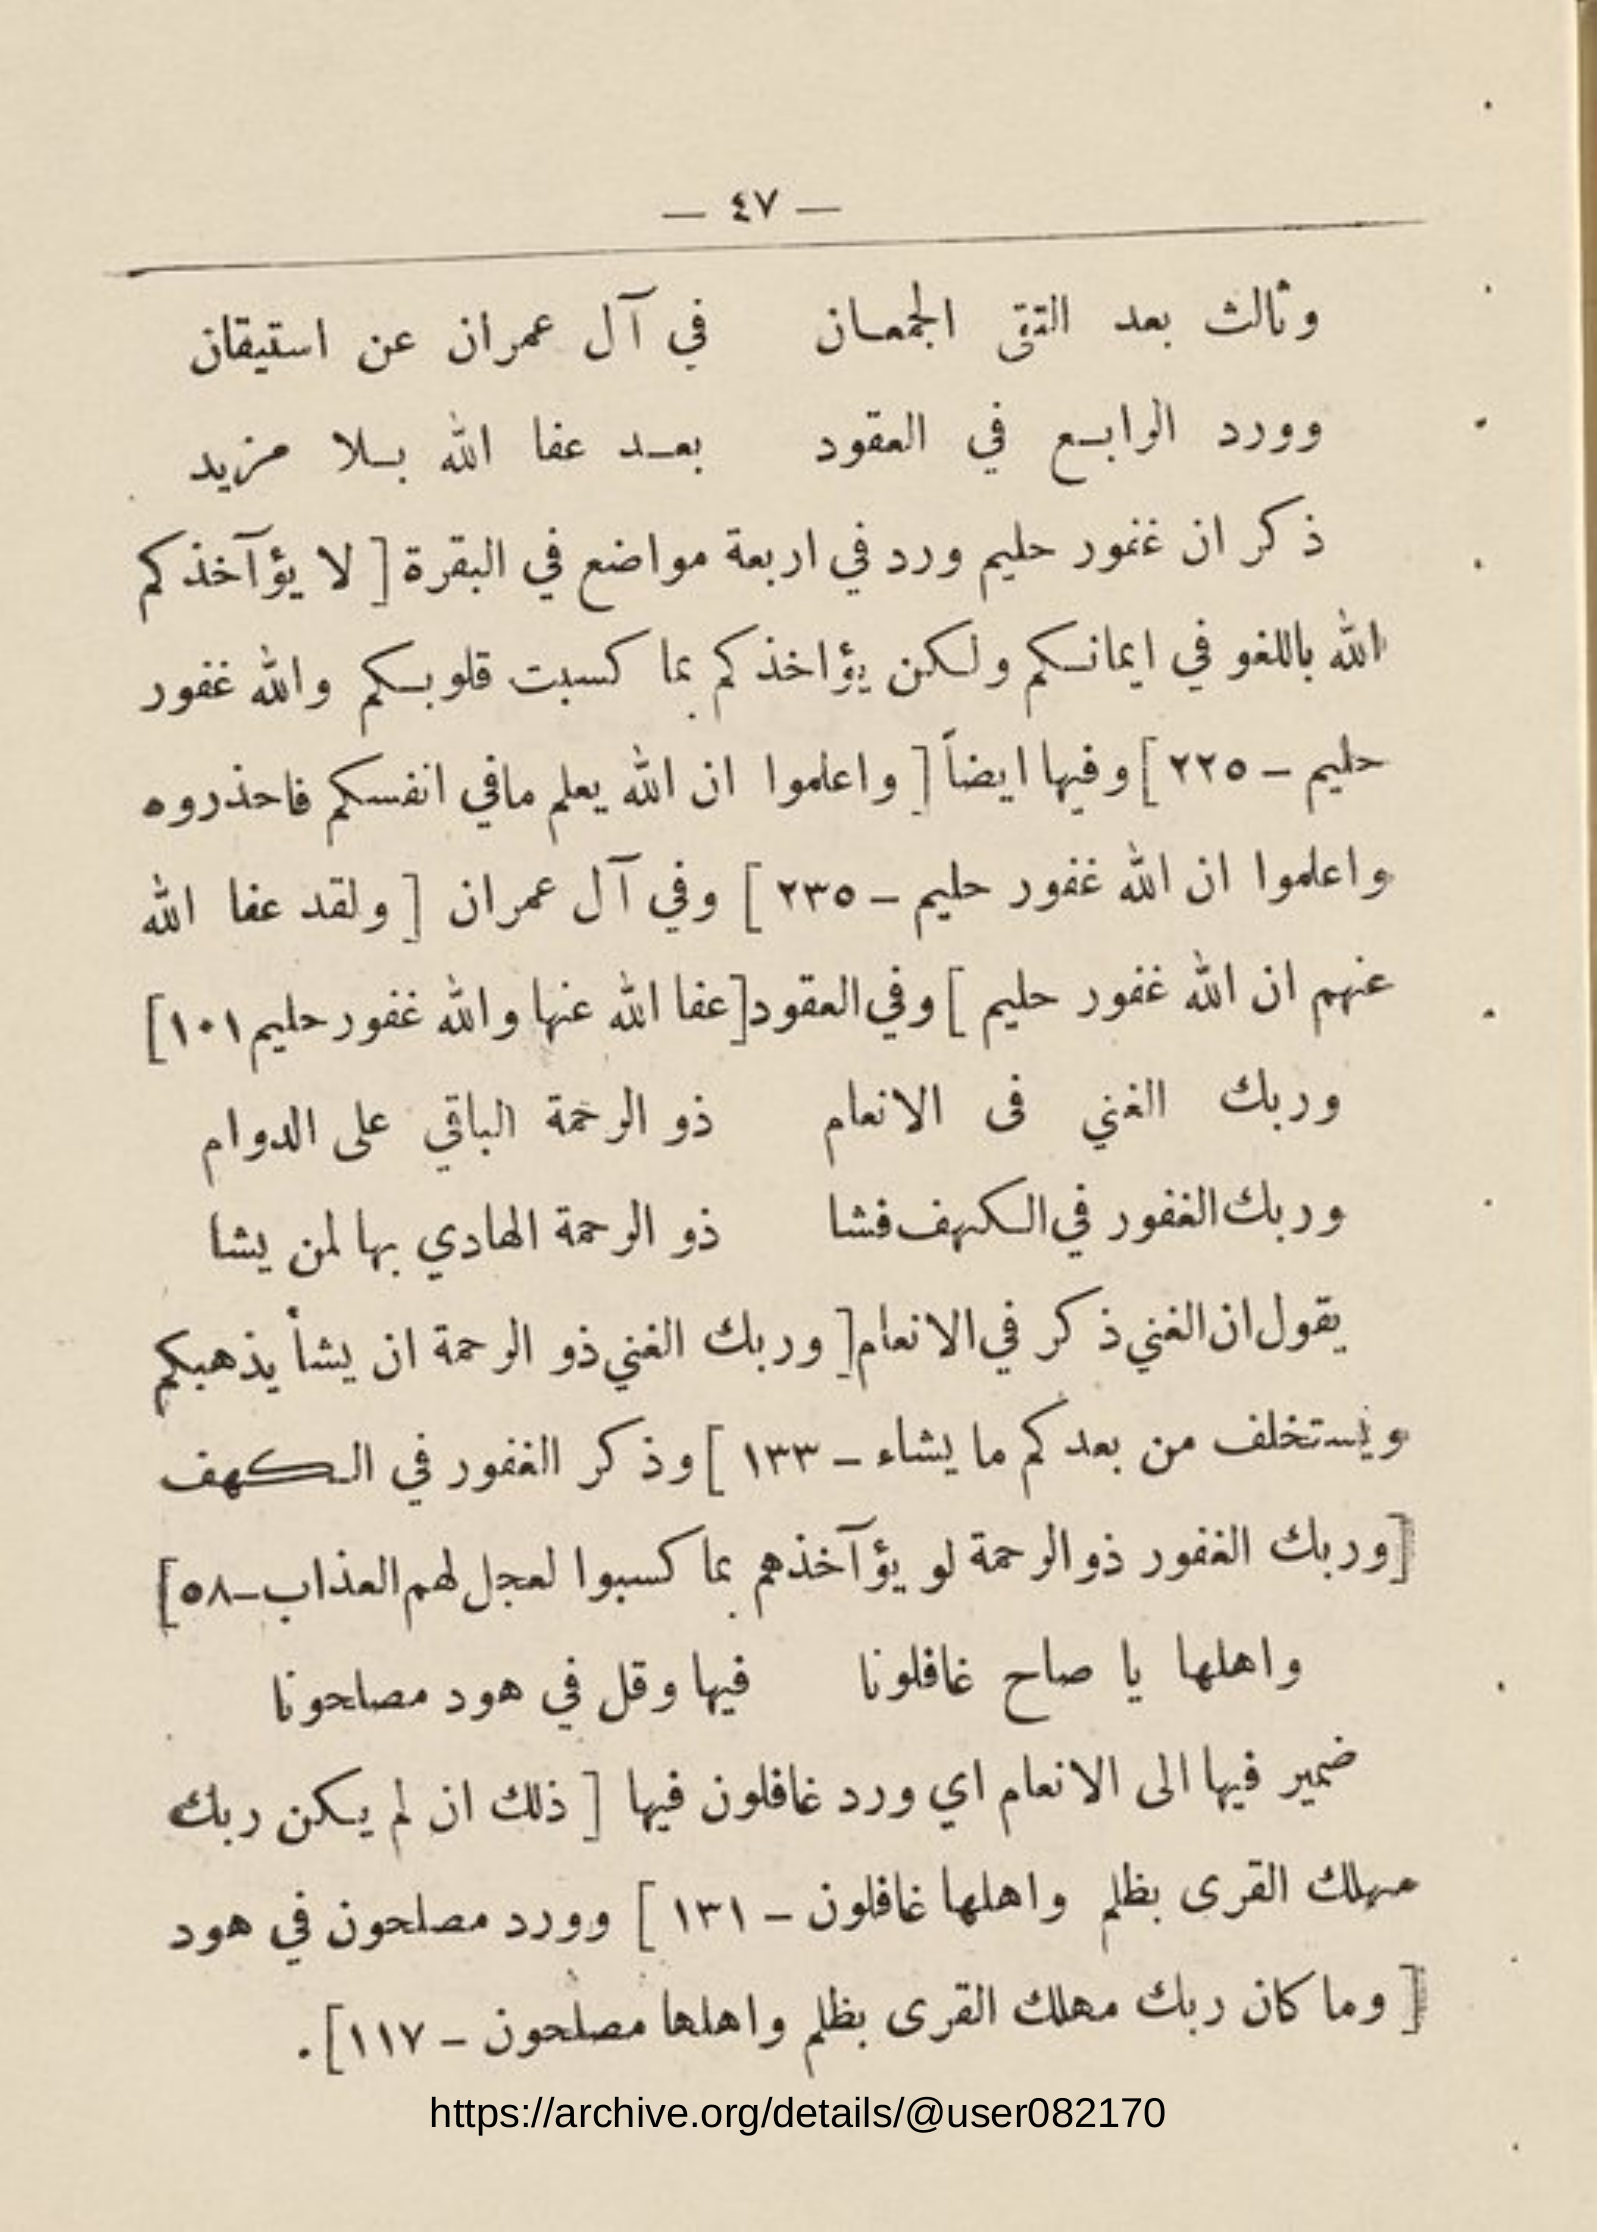 — ٤٧ —
وثالث بعد التقى الجمعان في آل عمران عن استيقان
وورد الرابع في العقود بعد عفا الله بلا مزيد
ذكر ان غفور حليم ورد في اربعة مواضع في البقرة [ لا يؤآخذكم
الله باللغو في ايمانكم ولكن يؤاخذكم بما كسبت قلوبكم والله غفور
حليم – ٢٢٥ ] وفيها ايضاً [ واعلموا ان الله يعلم مافي انفسكم فاحذروه
واعلموا ان الله غفور حليم – ٢٣٥ ] وفي آل عمران [ ولقد عفا الله
عنهم ان الله غفور حليم ] وفي العقود [عفا الله عنها والله غفور حليم ١٠١]
وربك الغني فى الانعام ذو الرحمة الباقي على الدوام
وربك الغفور في الكهف فشا ذو الرحمة الهادي بها لمن يشا
يقول ان الغني ذكر في الانعام [ وربك الغني ذو الرحمة ان يشأ يذهبكم
ويستخلف من بعدكم ما يشاء – ١٣٣ ] وذكر الغفور في الكهف
[وربك الغفور ذو الرحمة لو يؤآخذهم بما كسبوا لعجل لهم العذاب–٥٨]
واهلها يا صاح غافلونا فيها وقل في هود مصلحونا
ضمير فيها الى الانعام اي ورد غافلون فيها [ ذلك ان لم يكن ربك
مهلك القرى بظلم واهلها غافلون – ١٣١ ] وورد مصلحون في هود
[ وما كان ربك مهلك القرى بظلم واهلها مصلحون – ١١٧].
https://archive.org/details/@user082170